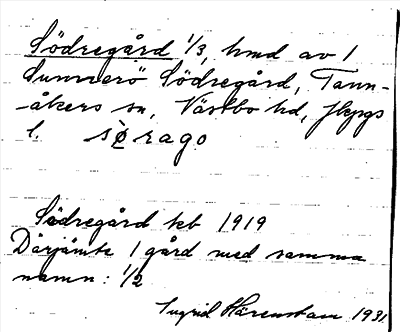 Södregård 1/3, hmd av 1
Sunnerö Södregård, Tann-
åkers sn, Västbo hd, Jkpgs
l. sørago
Södregård kb 1919
Därjämte 1 gård med samma
namn: 1/2
Ingrid Härenstam 1931